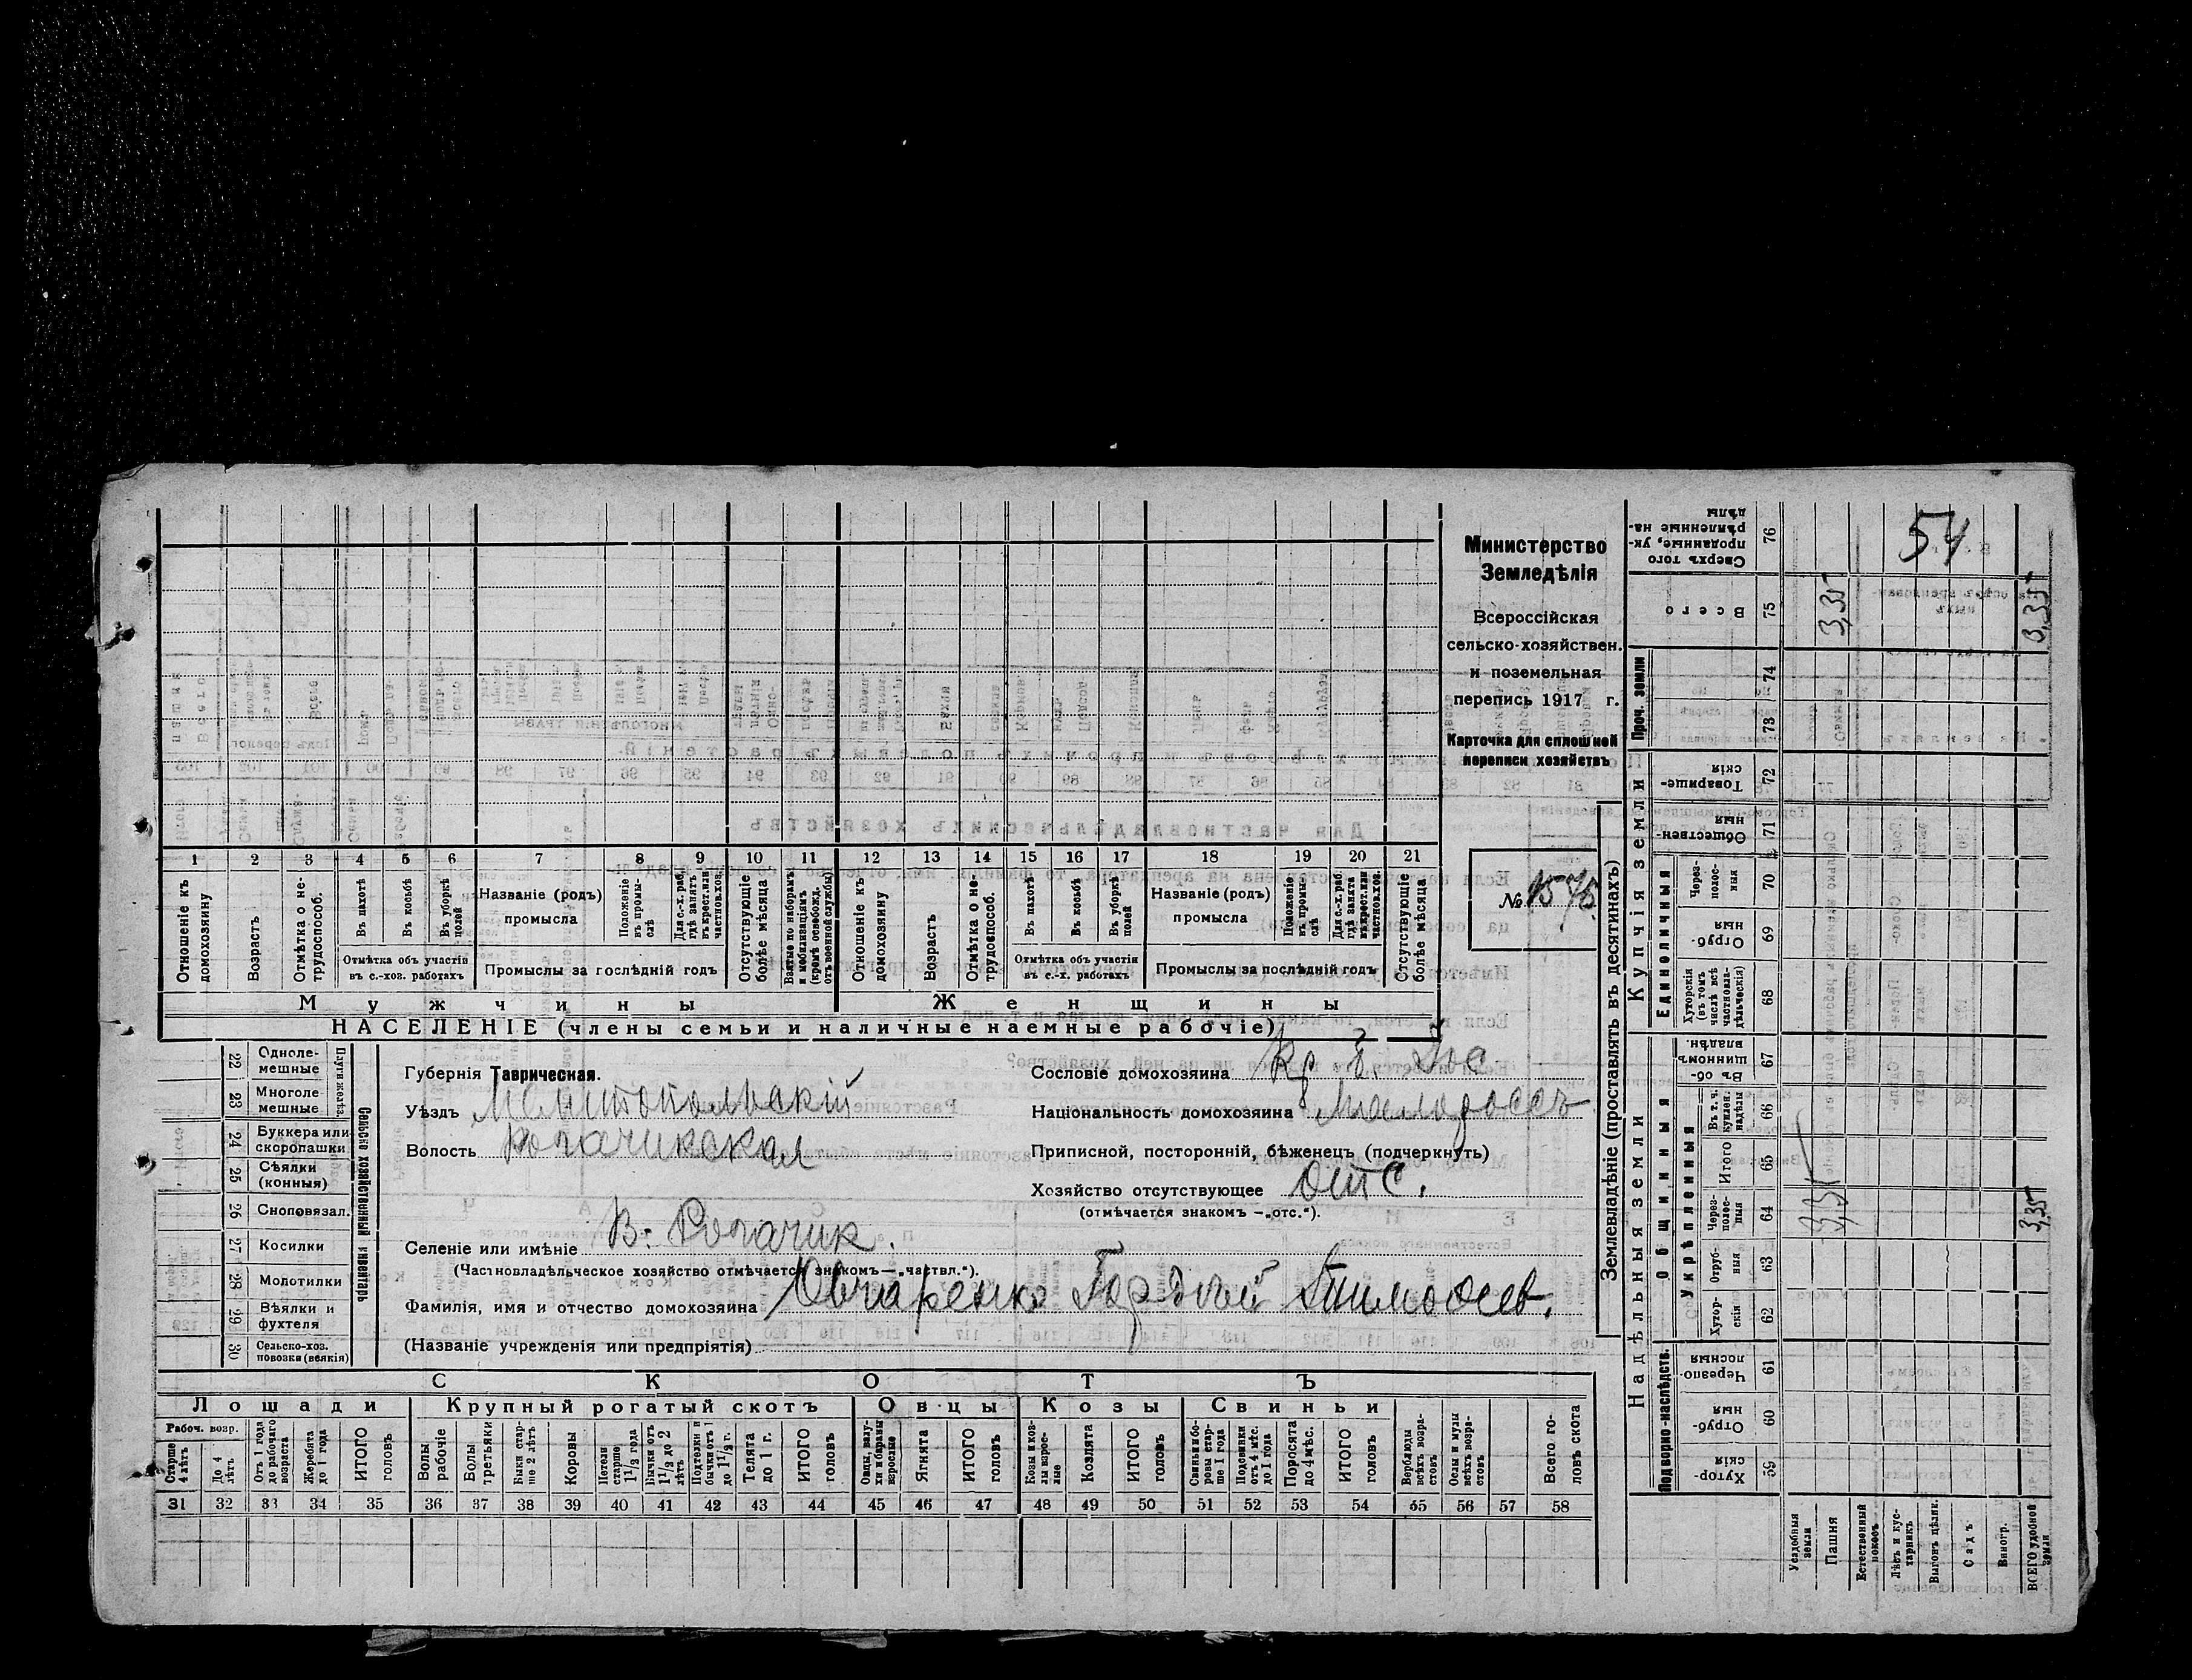 Министерство
Земледѣлія
Всероссійская
сельско-хозяйствен.
и поземельная
перепись 1917 г.
Карточка для сплошной
переписи хозяйствъ
№ 1575.
54
1 2 3 4 5 6 7 8 9 10 11 12 13 14 15 16 17 18 19 20 21
Отношеніе къ домохозяину
Возрастъ
Отмѣтка о нетрудоспособ.
Въ пахотѣ
Въ косьбѣ
Въ уборкѣ полей
Отмѣтка объ участіи въ с.-хоз. работахъ
Названіе (родъ) промысла
Положеніе въ промы-слѣ
Для с.-х. раб. гдѣ занятъ въ крест. или частнов. хоз.
Промыслы за послѣдній годъ
Отсутствующіе болѣе мѣсяца
Взятые по наборамъ и мобилизаціямъ (кромѣ освобожд. отъ военной службы)
Отношеніе къ домохозяину
Возрастъ
Отмѣтка о не-трудоспособ.
Въ пахотѣ
Въ косьбѣ
Въ уборкѣ полей
Отмѣтка объ участіи въ с.-х. работахъ
Названіе (родъ) промысла
Положеніе въ промы-слѣ
Для с.-х. раб. гдѣ занята въ крест. или частнов. хоз.
Промыслы за послѣдній годъ
Отсутствующіе болѣе мѣсяца
Мужчины Женщины
НАСЕЛЕНІЕ (члены семьи и наличные наемные рабочіе)
Сельско хозяйственный инвентарь
Плуги желѣз.
22 Одноле-мешные
23 Многоле-мешные
24 Буккера или скоропашки
25 Сѣялки (конныя)
26 Сноповязал.
27 Косилки
28 Молотилки
29 Вѣялки и фухтеля
30 Сельско-хоз. повозки (всякія)
Губернія Таврическая.
Уѣздъ Мелитопольскій
Волость Рогачикская
Селеніе или имѣніе В. Рогачик.
(Частновладѣльческое хозяйство отмѣчается знакомъ—„частвл.“).
Фамилія, имя и отчество домохозяина Овчаренко Гордѣй Тимофеев.
(Названіе учрежденія или предпріятія)
Сословіе домохозяина Кр
Національность домохозяина Малороссъ
Приписной, посторонній, бѣженецъ (подчеркнуть)
Хозяйство отсутствующее отс.
(отмѣчается знакомъ —„отс.“).
СКОТЪ
Лошади Крупный рогатый скотъ Овцы Козы Свиньи
Рабоч. возр.
Старше 4 лѣтъ
До 4 лѣтъ
Отъ 1 года до рабочаго возраста
Жеребята до 1 года
ИТОГО головъ
Волы рабочіе
Волы третьяки
Быки стар-ше 2 лѣтъ
Коровы
Нетели старше 1 1/2 года
Бычки отъ 1 1/2 до 2 лѣтъ
Подтелки и бычки отъ 1 до 1 1/2 г.
Телята до 1 г.
ИТОГО головъ
Овцы, валу-хи и бараны взрослые
Ягнята
ИТОГО головъ
Козы и коз-лы взрос-лые
Козлята
ИТОГО головъ
Свиньи и бо-ровы стар-ше 1 года
Подсвинки отъ 4 мѣс. до 1 года
Поросята до 4 мѣс.
ИТОГО головъ
Верблюды всѣхъ возра-стовъ
Ослы и мулы всѣхъ возра-стовъ
Всего го-ловъ скота
31 32 33 34 35 36 37 38 39 40 41 42 43 44 45 46 47 48 49 50 51 52 53 54 55 56 57 58
Землевладѣніе (проставлять въ десятинахъ)
Надѣльныя земли
Купчія земли
Проч. земли
Подворно-наслѣдств.
Общинныя
Укрѣпленныя
Единоличныя
Сверхъ того проданные, ук-рѣпленные на-дѣлы 76
Всего 75 3,35 3,35
74
73
Товарище-скія 72
Обществен-ныя 71
Через-полос-ныя 70
Отруб-ныя 69
Хуторскія (въ томъ числѣ всѣ частновла-дѣльческія) 68
Въ об-щинномъ владѣн. 67
Въ т. ч. куплен. надѣлы 66
Итого 65
Через-полос-ныя 64 3,35 3,35
Отруб-ныя 63
Хутор-скія 62
Черезпо-лосныя 61
Отруб-ныя 60
Хутор-скія 59
Усадебныя земли
Пашня
Естественный покосъ
Лѣсъ и кус-тарникъ
Выгонъ цѣлик.
Садъ
Виногр.
ВСЕГО удобной земли